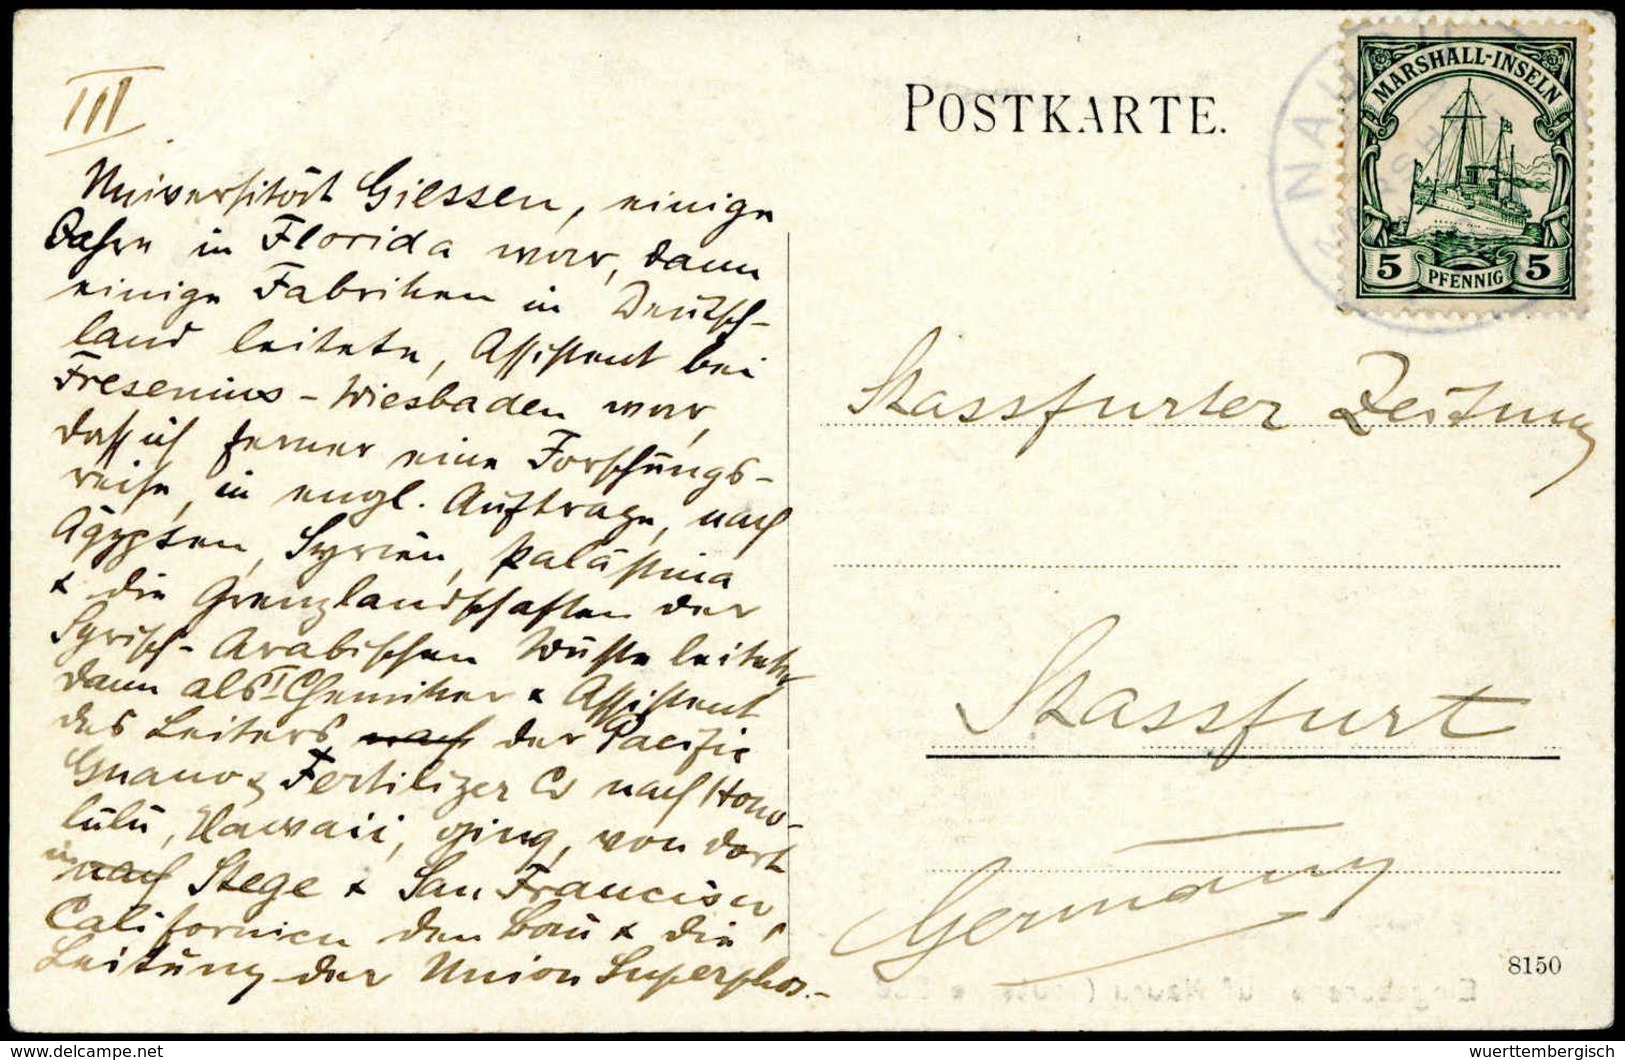 III
Universität Giessen, einige
Jahre in Florida war, dann
einige Fabriken in Deutsch-
land leitete, Assistent bei
Fresenius - Wiesbaden war,
daß ich ferner eine Forschungs-
reise, in engl. Auftrage, nach
Ägypten, Syrien, Palästina
& die Grenzlandschaften der
Syrisch-Arabischen Wüste leitete,
dann als I Chemiker & Assistent
des Leiters nach der Pacific
Guano & Fertilizer Co nach Hono-
lulu, Hawaii, ging, von dort
in nach Stege & San Francisco,
Californien den Bau & die
Leitung der Union Superphos.-
POSTKARTE.
NAURU
MARSHALL-INSELN
5 PFENNIG 5
Stassfurter Zeitung
Stassfurt
Germany
8150
wuerttembergisch